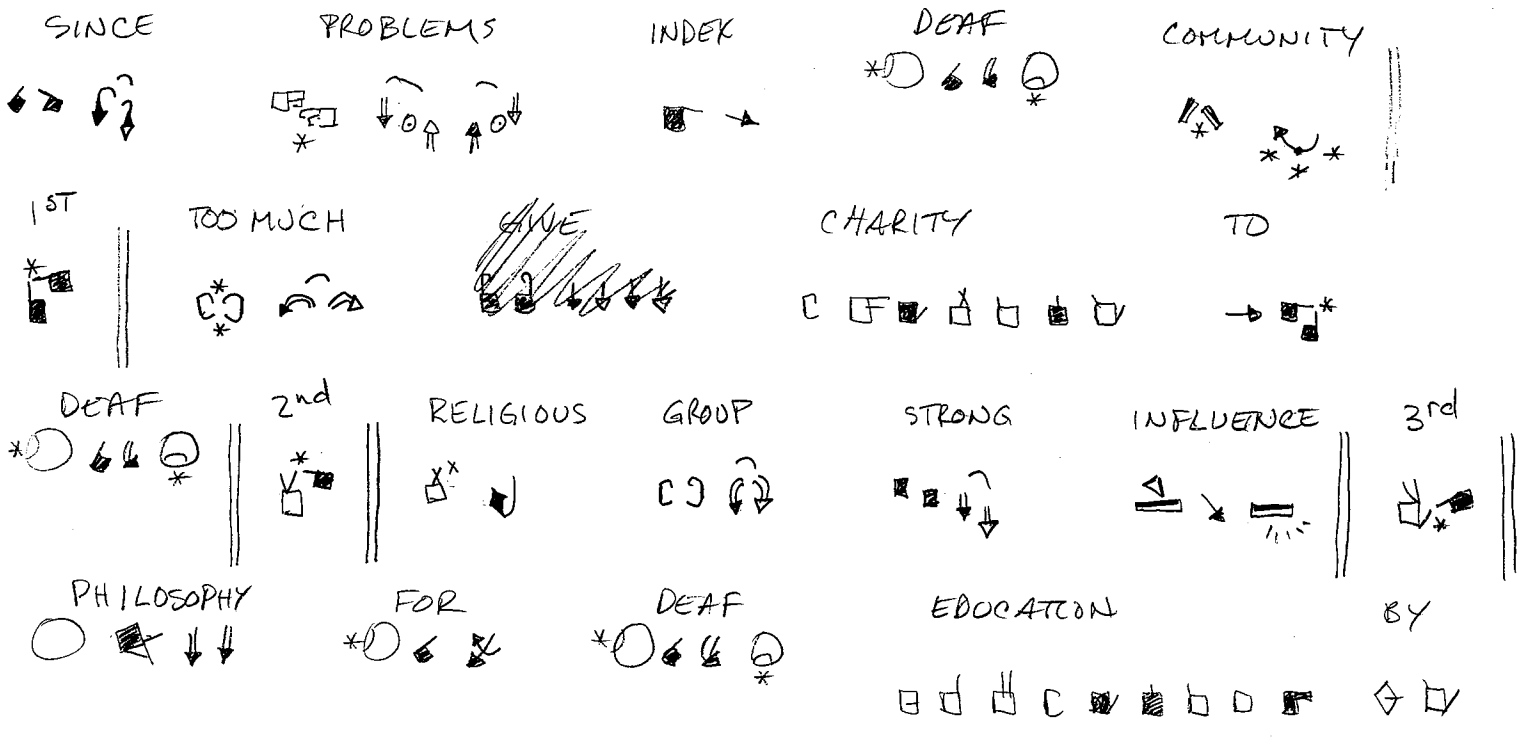 SINCE PROBLEMS INDEX DEAF COMMUNITY
1ST TOO MUCH GIVE CHARITY TO
DEAF 2nd RELIGIOUS GROUP STRONG INFLUENCE 3rd
PHILOSOPHY FOR DEAF EDUCATION BY